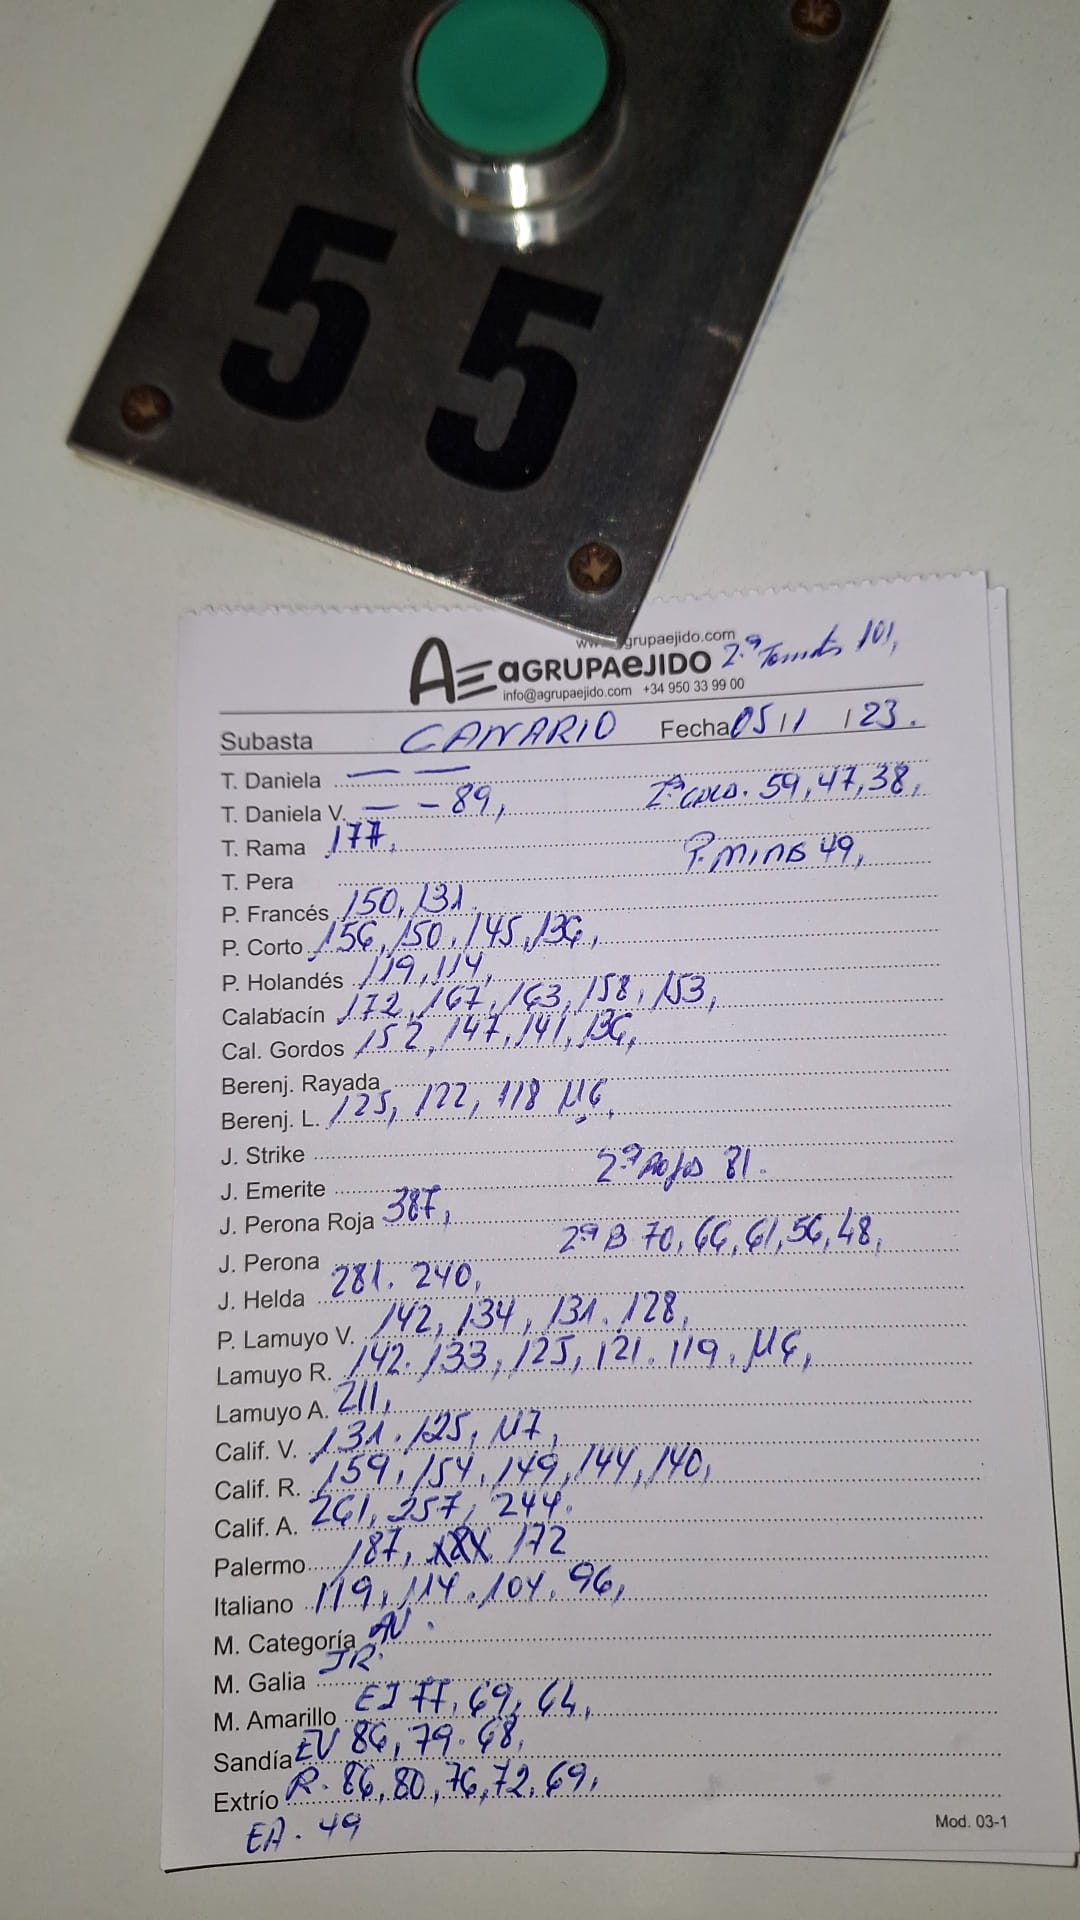 55
grupaejido.com
AE aGRUPAeJIDO 2.ª Tomates 101,
info@agrupaejido.com +34 950 33 99 00
Subasta CANARIO Fecha 05/1/23.
T. Daniela — —
T. Daniela V. — - 89, 2ª CALA. 59, 47, 38,
T. Rama 177,
T. Pera P. MINAS 49,
P. Francés 150, 131.
P. Corto 156, 150, 145, 136,
P. Holandés 119, 114,
Calabacín 172, 167, 163, 158, 153,
Cal. Gordos 152, 147, 141, 136,
Berenj. Rayada
Berenj. L. 125, 122, 118 116,
J. Strike
J. Emerite 2ª Rojos 81.
J. Perona Roja 387,
J. Perona 2ª B 70, 66, 61, 56, 48,
J. Helda 281. 240,
P. Lamuyo V. 142, 134, 131. 128,
Lamuyo R. 142. 133, 125, 121. 119, 116,
Lamuyo A. 211,
Calif. V. 131. 125, 117,
Calif. R. 159, 154, 149, 144, 140,
Calif. A. 261, 257, 244.
Palermo 187, 172
Italiano 119, 114. 104. 96,
M. Categoría AN.
M. Galia JR.
M. Amarillo EJ 77, 69, 64,
Sandía EV 86, 79. 68,
Extrío R. 86, 80, 76, 72, 69,
EA. 49
Mod. 03-1